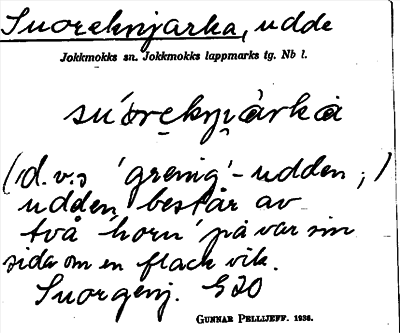 Suoreknjarka, udde
Jokkmokks sn. Jokkmokks lappmarks tg. Nb l.
suoreknjarka
(d.v.s 'grenig'-udden;)
udden består av
två 'horn' på var sin
sida om en flack vik.
Suorgenj. G20
GUNNAR PELLIJEFF. 1936.